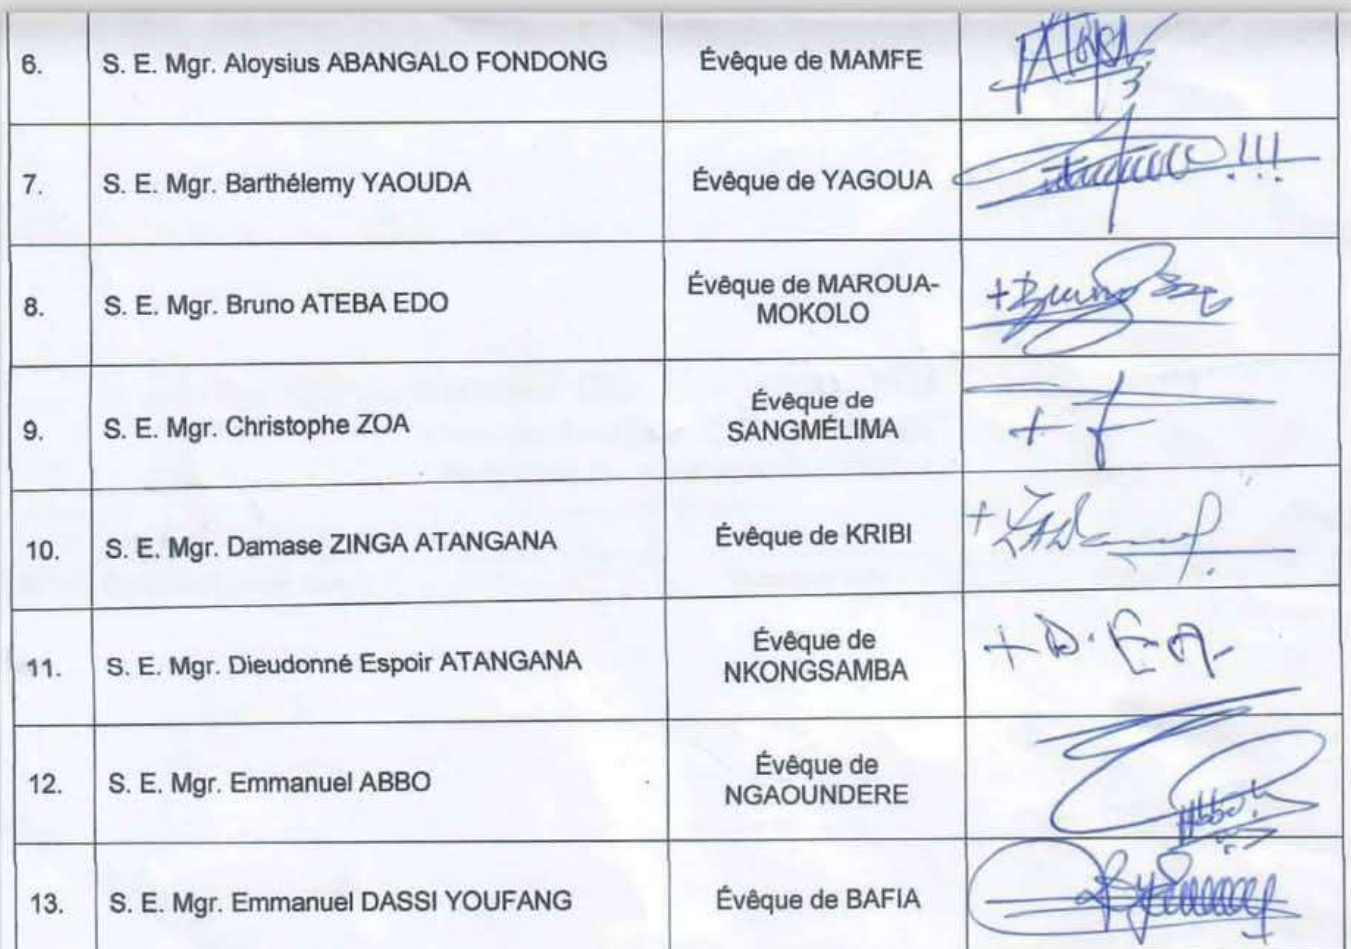 6. S. E. Mgr. Aloysius ABANGALO FONDONG Évêque de MAMFE
7. S. E. Mgr. Barthélemy YAOUDA Évêque de YAGOUA !!!
8. S. E. Mgr. Bruno ATEBA EDO Évêque de MAROUA-
MOKOLO +Bruno
9. S. E. Mgr. Christophe ZOA Évêque de
SANGMÉLIMA +
10. S. E. Mgr. Damase ZINGA ATANGANA Évêque de KRIBI +
11. S. E. Mgr. Dieudonné Espoir ATANGANA Évêque de
NKONGSAMBA + D. E A.
12. S. E. Mgr. Emmanuel ABBO Évêque de
NGAOUNDERE Abbo
13. S. E. Mgr. Emmanuel DASSI YOUFANG Évêque de BAFIA